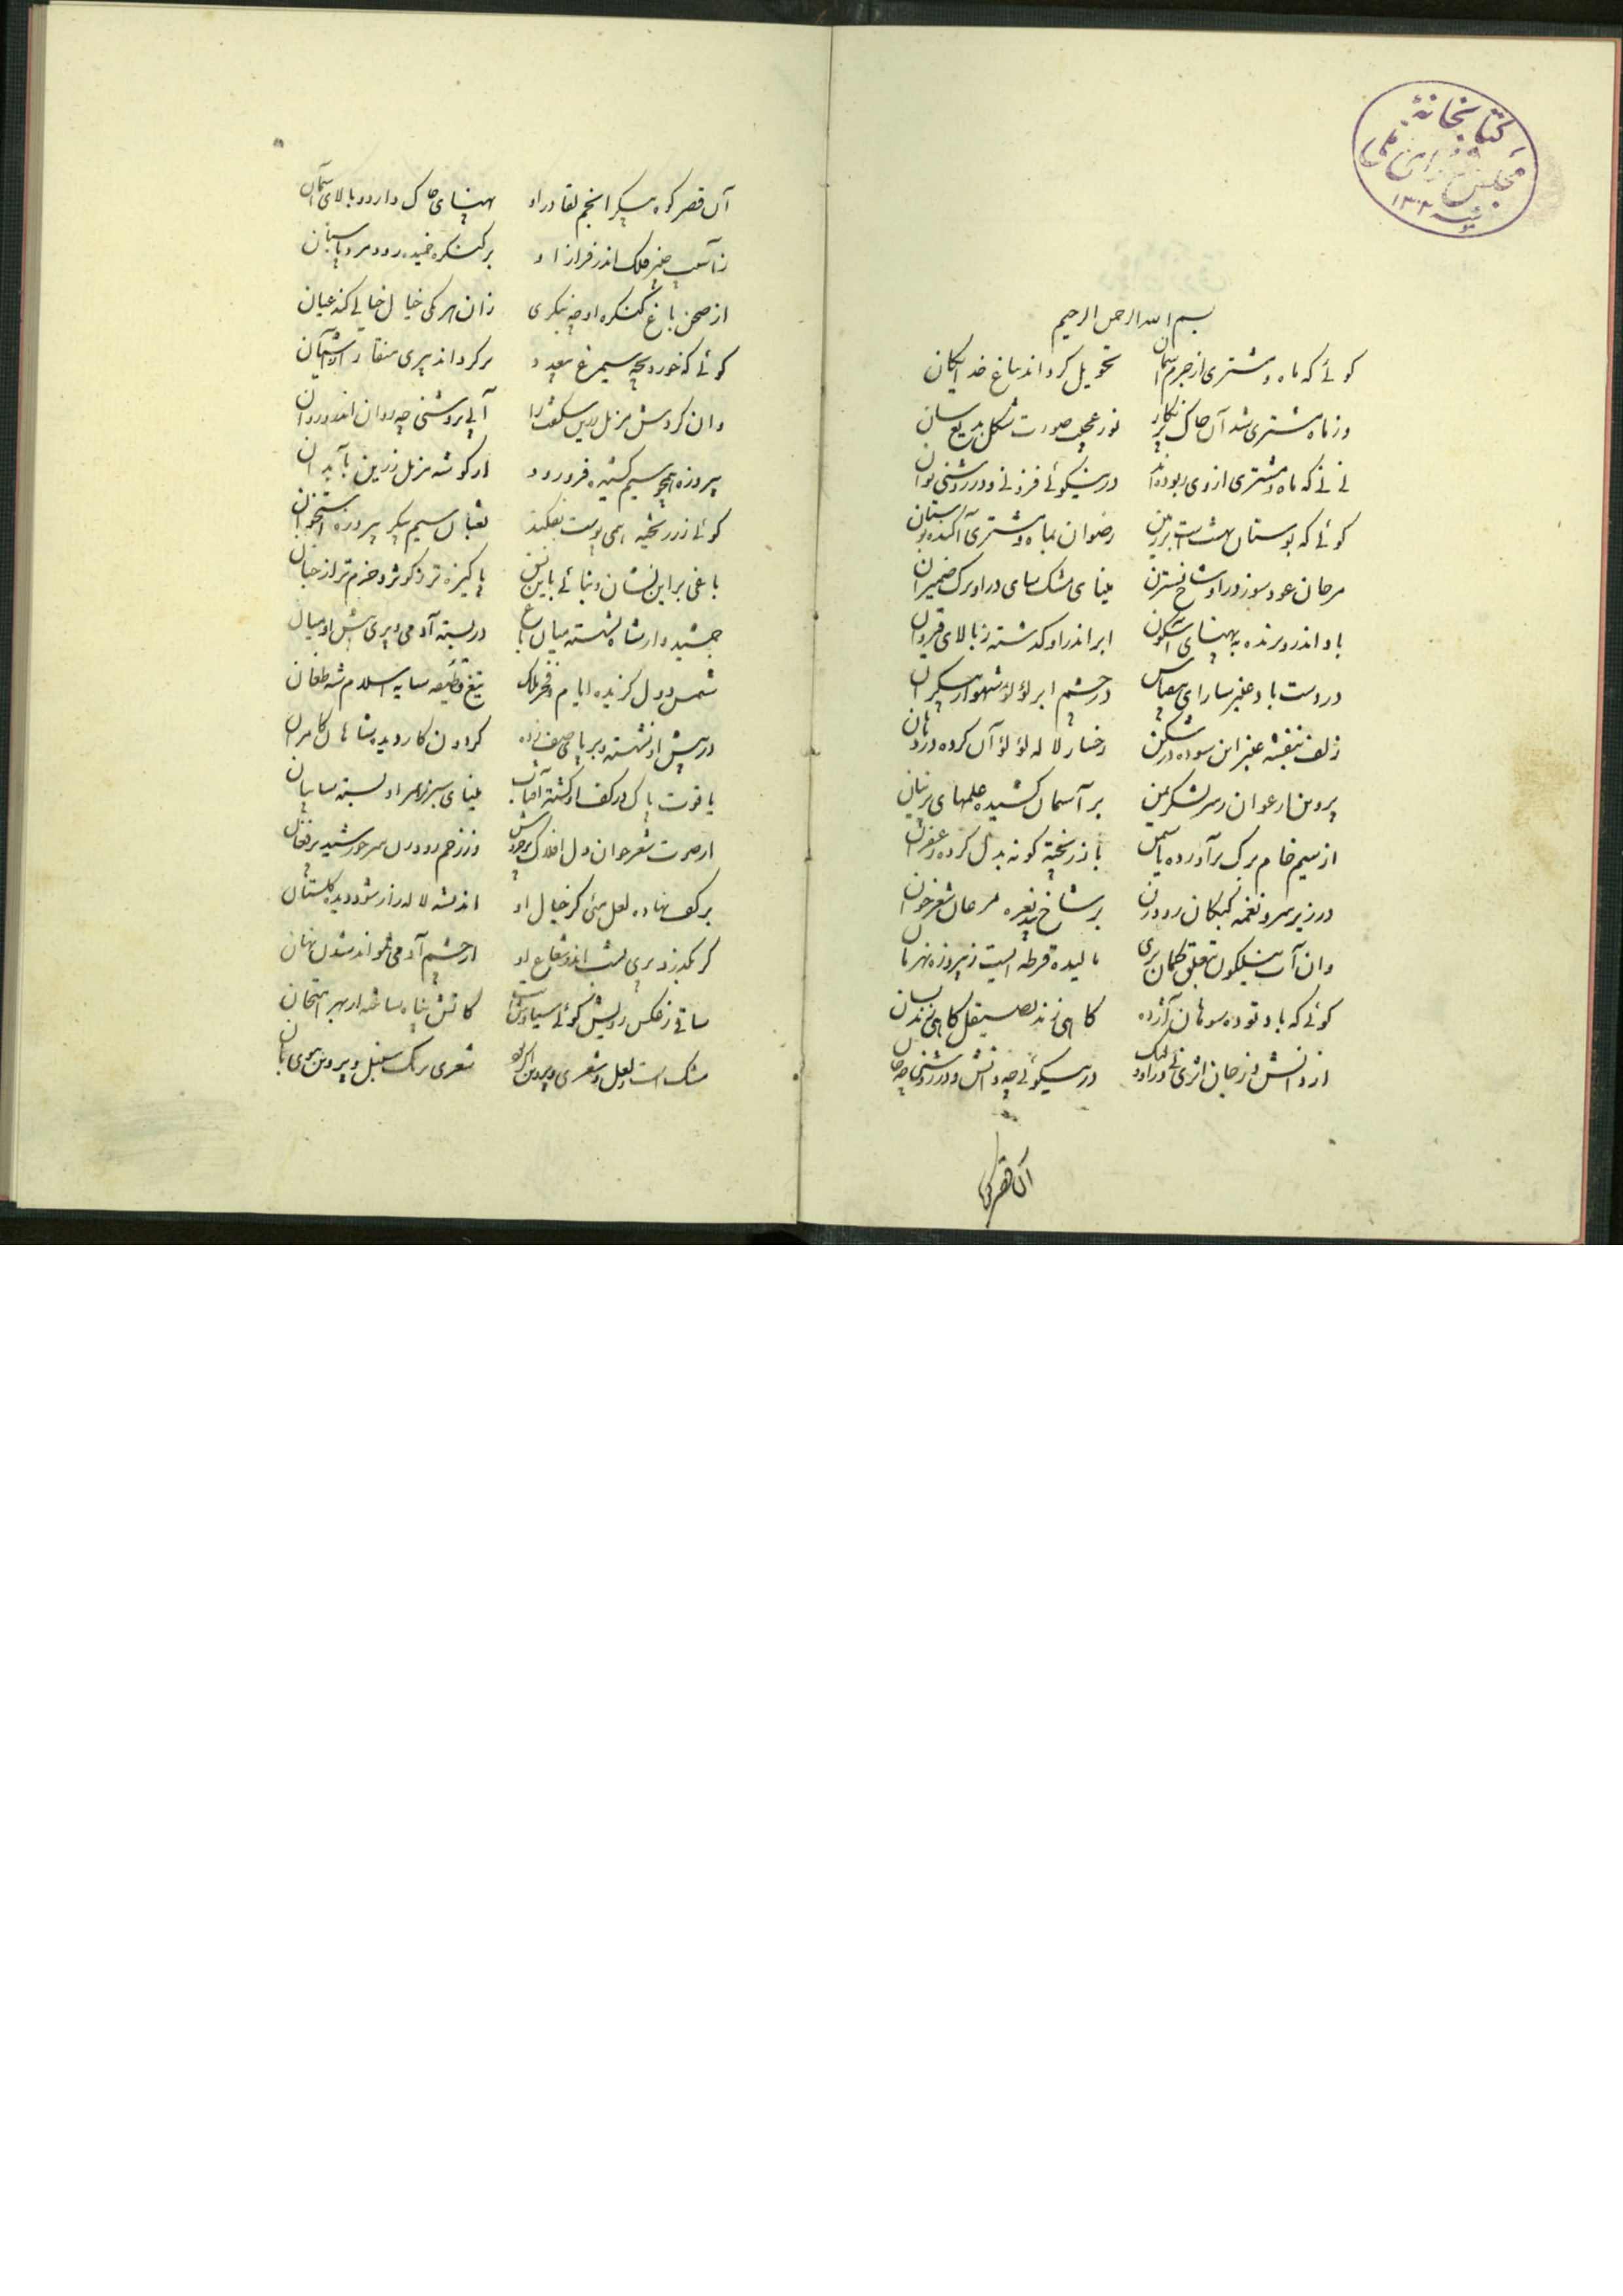 کتابخانهٔ
مجلس شورای ملی
بسم الله الرحمن الرحیم
کوئے که ماه و مشتری از جرم آسمان تحویل کرده‌اند بباغ خدایکان
وز ماه و مشتری شد آن خاک پرنکار نور عجیب صورت و شکل بدیع سان
نے نے که ماه و مشتری از وی ربوده‌اند در نیکوئے فزونے و در روشنی توان
کوئے که بوستان بهشت است بر زمین رضوان بماه و مشتری آکنده بوستان
مرجان عود سوز در او شاخ نسترن مینای مشک سای در او برک ضمیران
باد اندر وبرنده به پهنای آسکون ابر اندر او کذشته ز بالای قیروان
در دست باد عنبر سارای بیقیاس در چشم ابر لؤلؤ شهوار بیکران
زلف بنفشه عنبر این سوده در شکن رخسار لاله لؤلؤ آن کرده در دهان
پروین ارغوان ز سر لشکر کمین بر آسمان کشیده علمهای پرنیان
از سیم خام برک برآورده یاسمن با زر پخته کونه بدل کرده زعفران
در زیر سرو نغمه کبکان رودزن بر شاخ بید نعره مرغان شعرخوان
وان آب نیلکون معلق کمان بری مالیده قرطه ایست ز پیروزه بهرمان
کوئے که باد توده سوهان آژده کاهی زند بصیقل کاهی زند بسان
از دانش و ز جان اثری نے در او ولیک در نیکوئے چه دانش و در روشنی چه جان
آن قصر کوه
آن قصر کوه پیکر انجم لقا در او پهنای خاک دارد و بالای آسمان
ز آسیب چنبر فلک اندر فراز او بر کنکره خمیده رود مرد پاسبان
از صحن باغ کنکره او چه بنکری زان هر یکی خیال خیالے کند عیان
کوئے که خورد بچه سیمرغ سر کرده‌اند بری منقار از آشیان
وان کردش آبے بروشنی چه روان اندرو روان
پیروزه همچو سیم کشیده فرورود از کوشه زرین بآبدان
کوئے ز زر پخته همی پوست بفکند ثعبان سیم پیکر پیروزه استخوان
باغی بر این نشان و بنائے باین نسق پاکیزه‌تر ز کوثر و خرم‌تر از جنان
جمشیدوار شاه نشسته میان باغ در بسته آدمی و پری پیش او میان
شمس دول کزیده ایام و فخر ملک تیغ خلیفه سایه اسلام شه طغان
در پیش او نشسته و بر پای صف زده کردون کاردیده شاهان کامران
یاقوت پاک در کف او کشته آفتاب مینای سبز بر سر او بسته سایبان
از صوت شعرخوان دل افلاک پرخروش وز زخم رودزن سر خورشید پرفغان
بر کف نهاده لعل مئی کز خیال او اندیشه لاله‌زار شود دیده کلستان
کر بکذرد پری بشب اندر شعاع او از چشم آدمی نتواند شدن نهان
ساقے ز عکس رویش کوئے سیاوش است کاتش پناه ساخته از بهر امتحان
مشک است و لعل و شعری و پروین شعری برنک سنبل و پروین ببوی بان